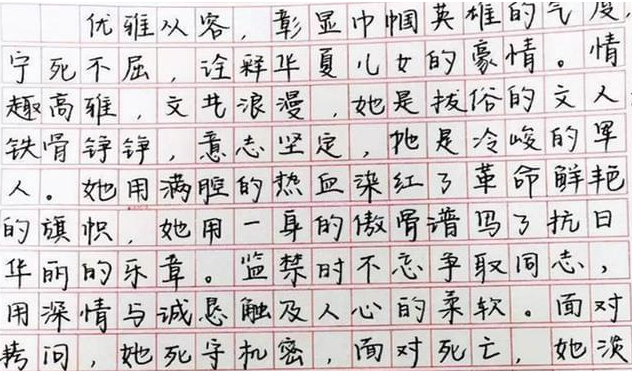 优雅从容，彰显巾帼英雄的气度，
宁死不屈，诠释华夏儿女的豪情。情
趣高雅，文艺浪漫，她是拔俗的文人
铁骨铮铮，意志坚定，她是冷峻的军
人。她用满腔的热血染红了革命鲜艳
的旗帜，她用一身的傲骨谱写了抗日
华丽的乐章。监禁时不忘争取同志，
用深情与诚恳触及人心的柔软。面对
拷问，她死守机密，面对死亡，她淡